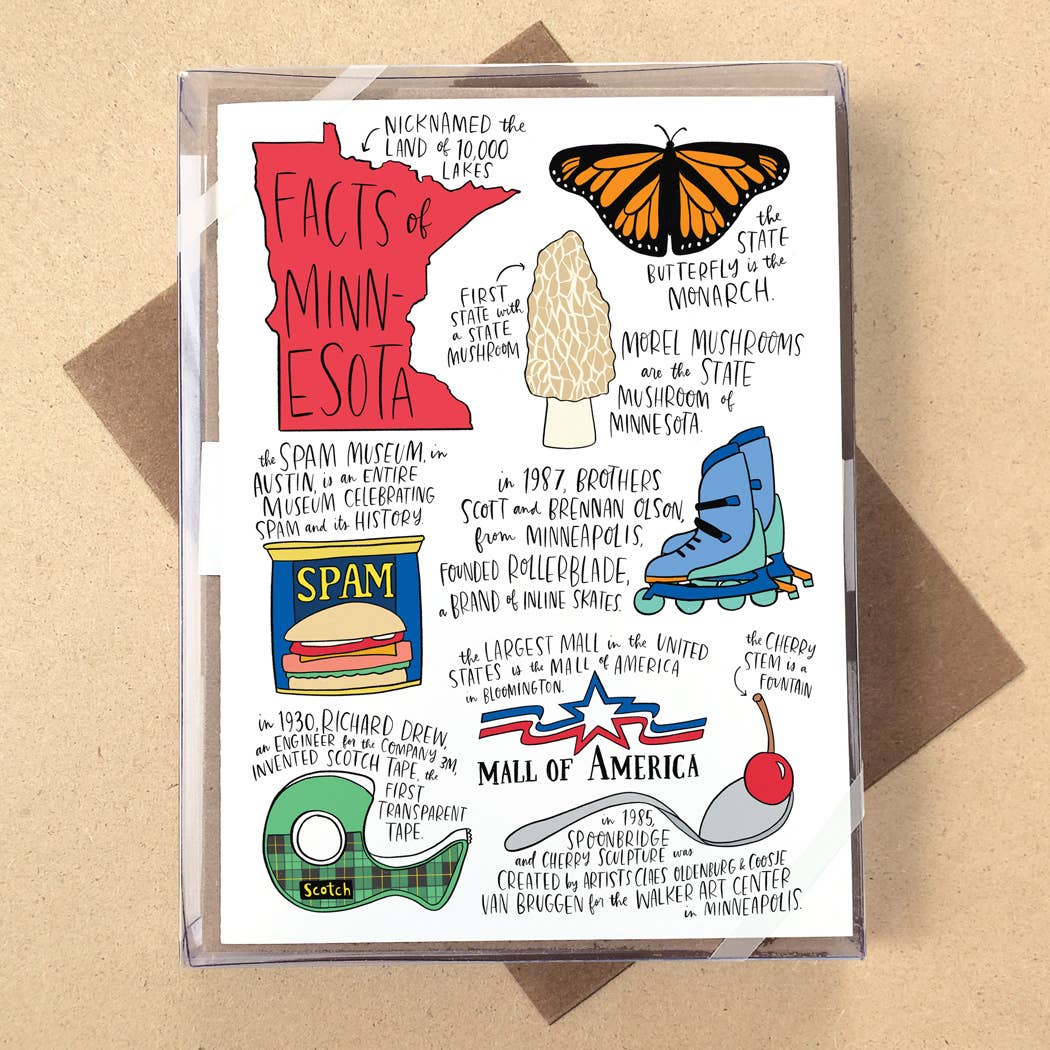 NICKNAMED the
LAND of 10,000
LAKES
FACTS of
MINN-
ESOTA
the
STATE
BUTTERFLY is the
MONARCH.
FIRST
STATE with
a STATE
MUSHROOM
MOREL MUSHROOMS
are the STATE
MUSHROOM of
MINNESOTA.
the SPAM MUSEUM, in
AUSTIN, is an ENTIRE
MUSEUM CELEBRATING
SPAM and its HISTORY.
SPAM
in 1987, BROTHERS
SCOTT and BRENNAN OLSON,
from MINNEAPOLIS,
FOUNDED ROLLERBLADE,
a BRAND of INLINE SKATES.
the LARGEST MALL in the UNITED
STATES is the MALL of AMERICA
in BLOOMINGTON.
MALL OF AMERICA
the CHERRY
STEM is a
FOUNTAIN
in 1930, RICHARD DREW,
an ENGINEER for the COMPANY 3M,
INVENTED SCOTCH TAPE, the
FIRST
TRANSPARENT
TAPE.
Scotch
in 1985,
SPOONBRIDGE
and CHERRY SCULPTURE was
CREATED by ARTISTS CLAES OLDENBURG & COOSJE
VAN BRUGGEN for the WALKER ART CENTER
in MINNEAPOLIS.